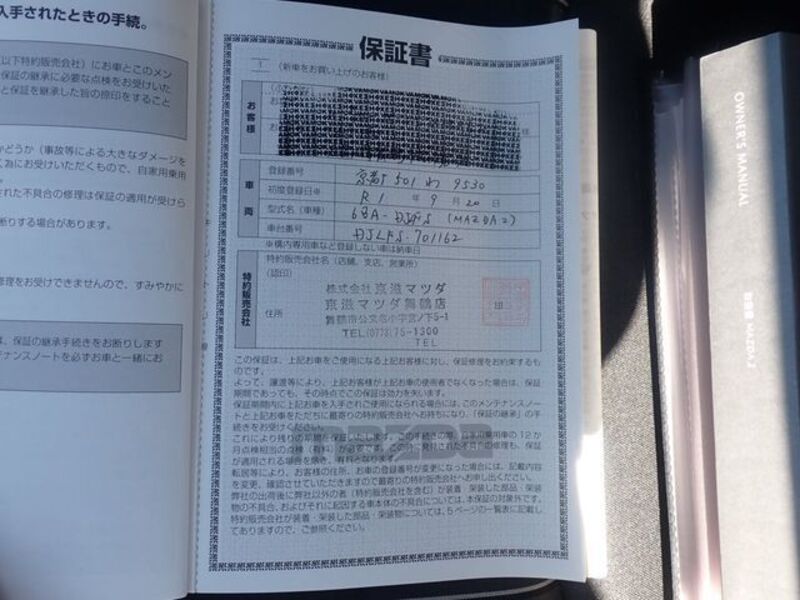 入手されたときの手続。
以下特約販売会社）にお車とこのメン
保証の継承に必要な点検をお受けいた
と保証を継承した旨の捺印をすること
かどうか（事故等による大きなダメージを
為にお受けいただくもので、自家用乗用
れた不具合の修理は保証の適用が受けら
断りする場合があります。
修理をお受けできませんので、すみやかに
は、保証の継承手続きをお断りします
テナンスノートを必ずお車と一緒にお
保証書
1
（新車をお買い上げのお客様）
お客様
車両
登録番号 京都 501 わ 9530
初度登録日※ R1 年 9 月 20 日
型式名（車種） 6BA-DJLFS (MAZDA2)
車台番号 DJLFS-701162
※構内専用車など登録しない車は納車日
特約販売会社
特約販売会社名（店舗、支店、営業所）
（認印）
株式会社 京滋マツダ
京滋マツダ舞鶴店
印
住所 舞鶴市公文名小字宮ノ下5-1
TEL(0773)75-1300
TEL
この保証は、上記お車をご使用になる上記お客様に対し、保証修理をお約束するも
のです。
よって、譲渡等により、上記お客様が上記お車の使用者でなくなった場合は、保証
期間であっても、その時点でこの保証は効力を失います。
保証期間内に上記お車を入手されご使用になられる場合には、このメンテナンスノー
トと上記お車をただちに最寄りの特約販売会社へお持ちになり、「保証の継承」の手
続きをお受けください。
これにより残りの期間を保証いたします。この手続きの際、自家用乗用車の12か
月点検相当の点検（有料）が必要です。この時に発見された不具合の修理も、保証
が適用される場合を除き、有料となります。
転居等により、お客様の住所、お車の登録番号が変更になった場合には、記載内容
を変更、確認させていただきますので最寄りの特約販売会社へお申し出ください。
弊社の出荷後に弊社以外の者（特約販売会社を含む）が装着・架装した部品・架装
物の不具合、およびそれに起因する車本体の不具合については、本保証の対象外です。
特約販売会社が装着・架装した部品・架装物については、5ページの一覧表に記載し
てありますので、ご参照ください。
OWNER'S MANUAL
MAZDA2